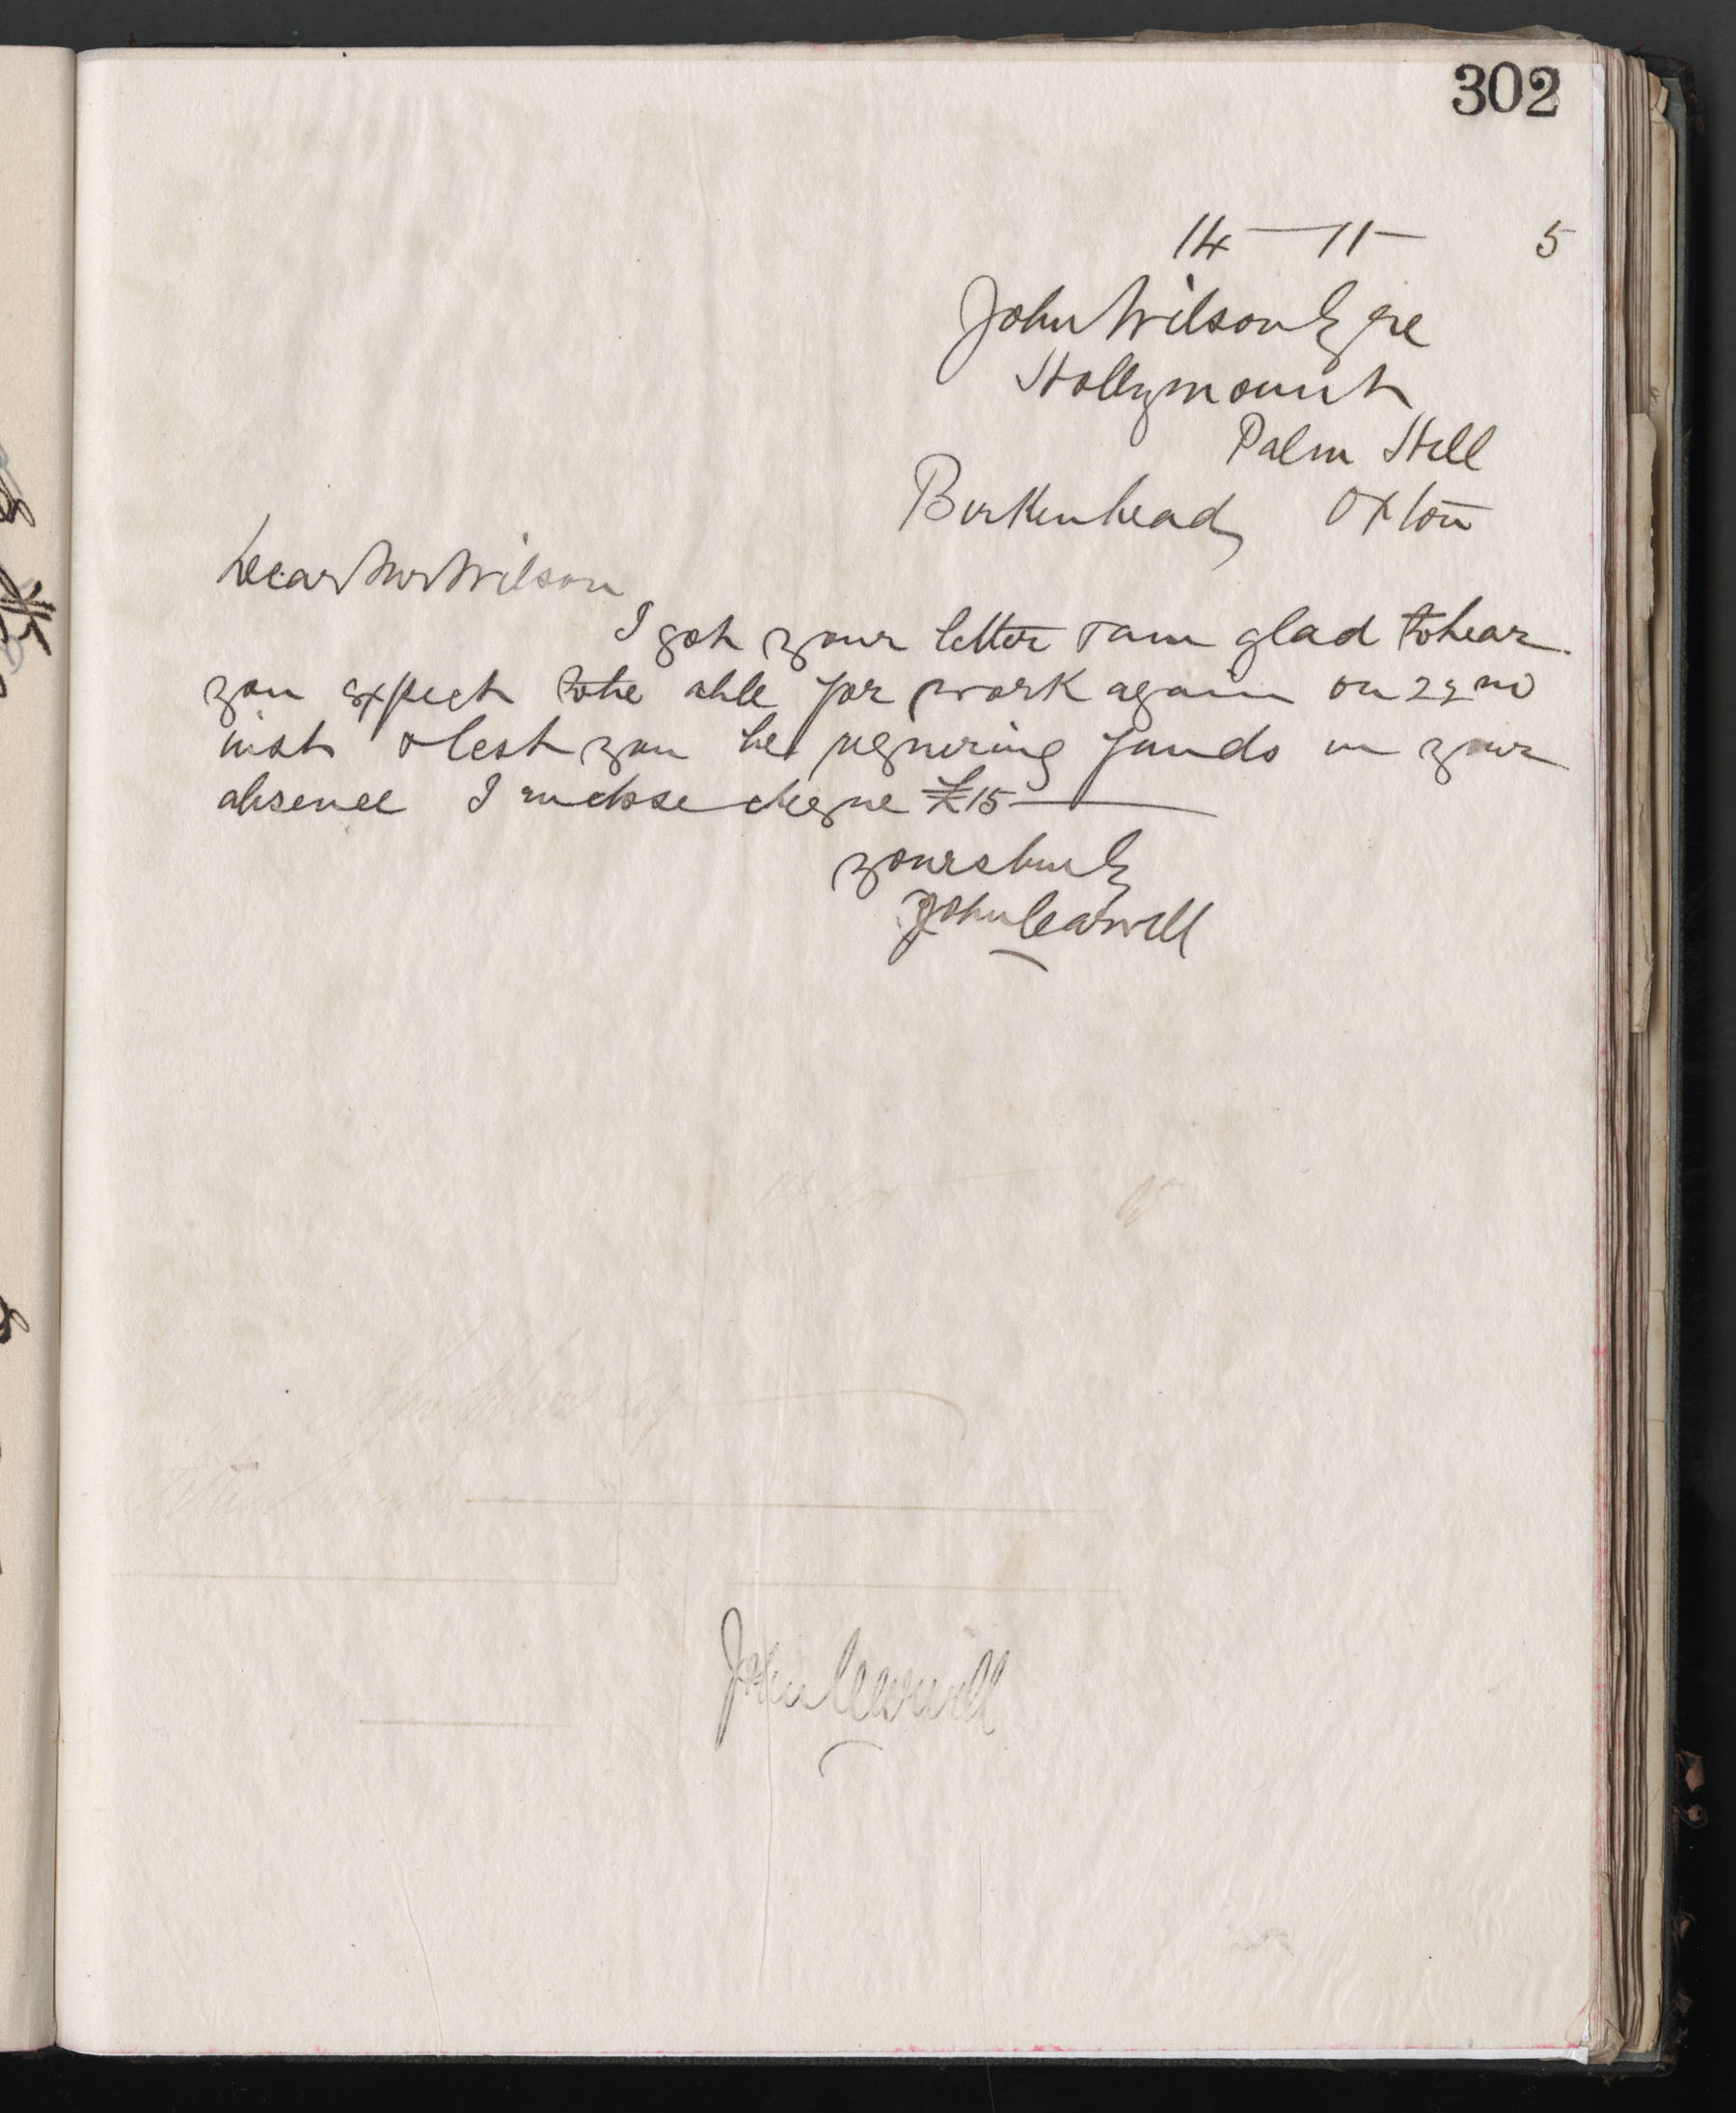 302
14 — 11 — 5
John Wilson Esqre
Hollymount
Palm Hill
Birkenhead, Oxton
Dear Mr Wilson
I got your letter & am glad to hear
you expect to be able for work again on 22nd
inst & lest you be requiring funds in your
absence I enclose cheque £15 —
yours truly
John Carvill
John Carvill